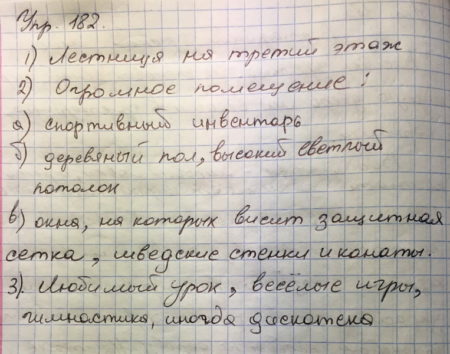 Упр. 182.
1) Лестница на третий этаж
2) Огромное помещение:
а) спортивный инвентарь
б) деревяный пол, высокий светлый
потолок
в) окна, на которых висит защитная
сетка, шведские стенки и канаты.
3) Любимый урок, весёлые игры,
гимнастика, иногда дискотека